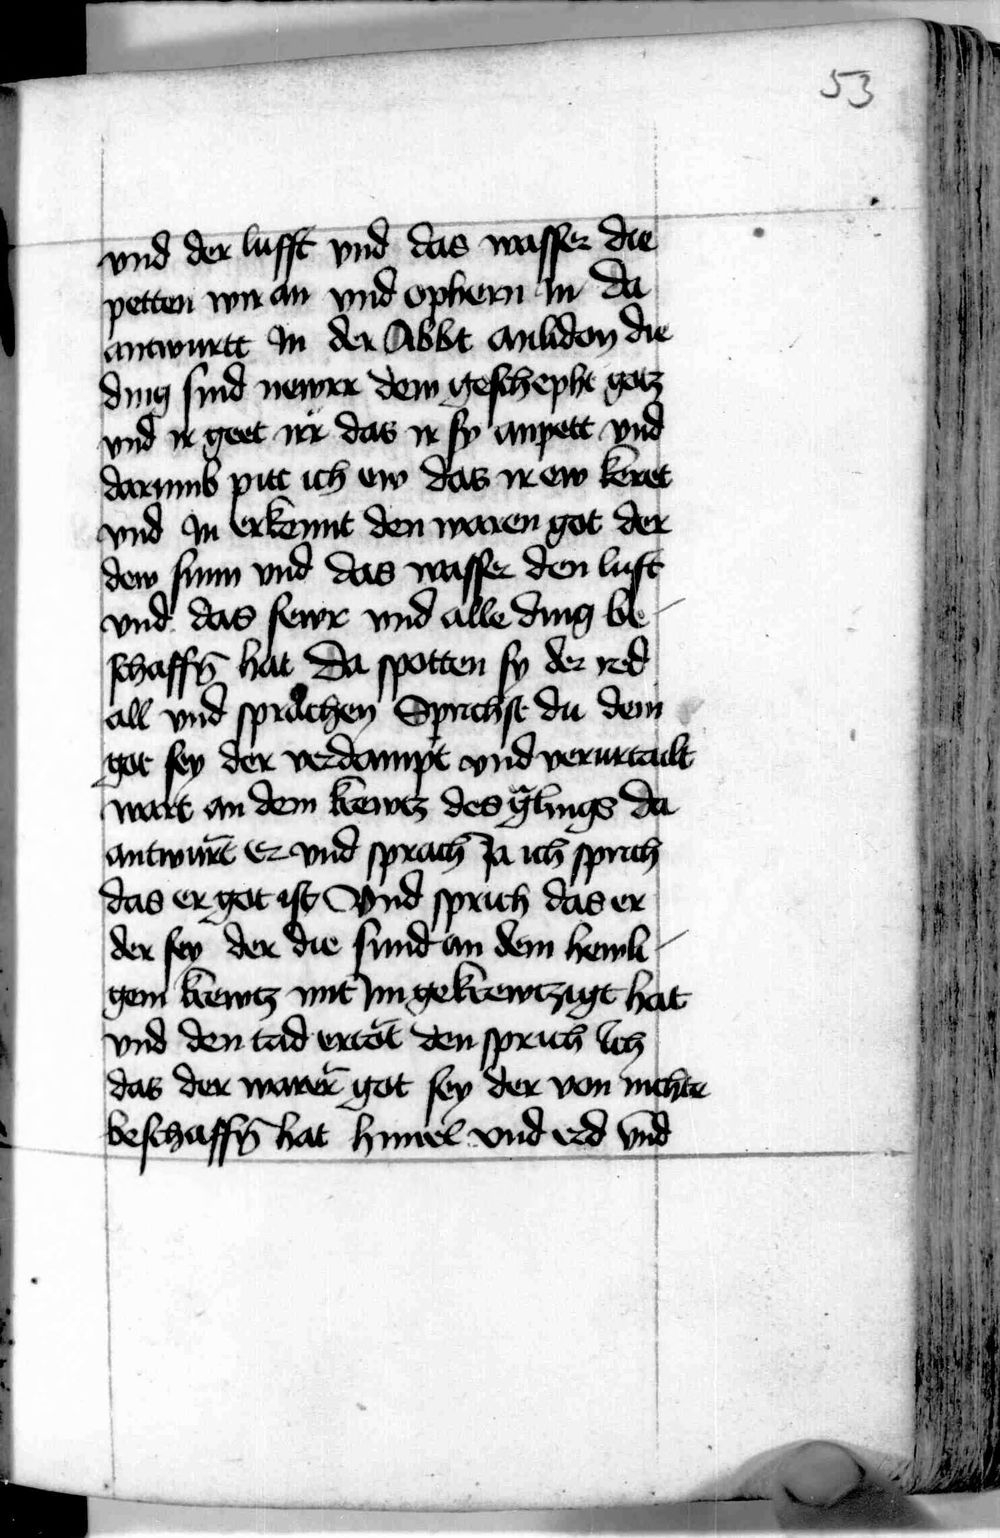 53
vnd der lufft vnd das wasser die
petten wir an vnd ophern In Da
antwurtt In der Abbt die
ding sind newrr dew geschepht gotz
vnd ir geet irr das ir sy anpett vnd
darumb pitt ich ew das ir ew keret
vnd In erkennt den waren got der
dew sunn vnd das wasser den luft
vnd das fewr vnd alle ding be-
schaffn̄ hat Da spotten sy der red
all vnd sprachen Sprichst du dem
got sey der verdampt vnd verurtailt
wart an dem krewtz des Da
antwurt̄ Er vnd sprach Ja ich sprich
das er got ist Vnd sprich das er
der sey der die sund an dem heyli-
gem krewtz mit Im gekrewtzigt hat
vnd den tad ertöt den sprich Ich
das der warer got sey der von nichte
beschaffn̄ hat himel vnd erd vnd